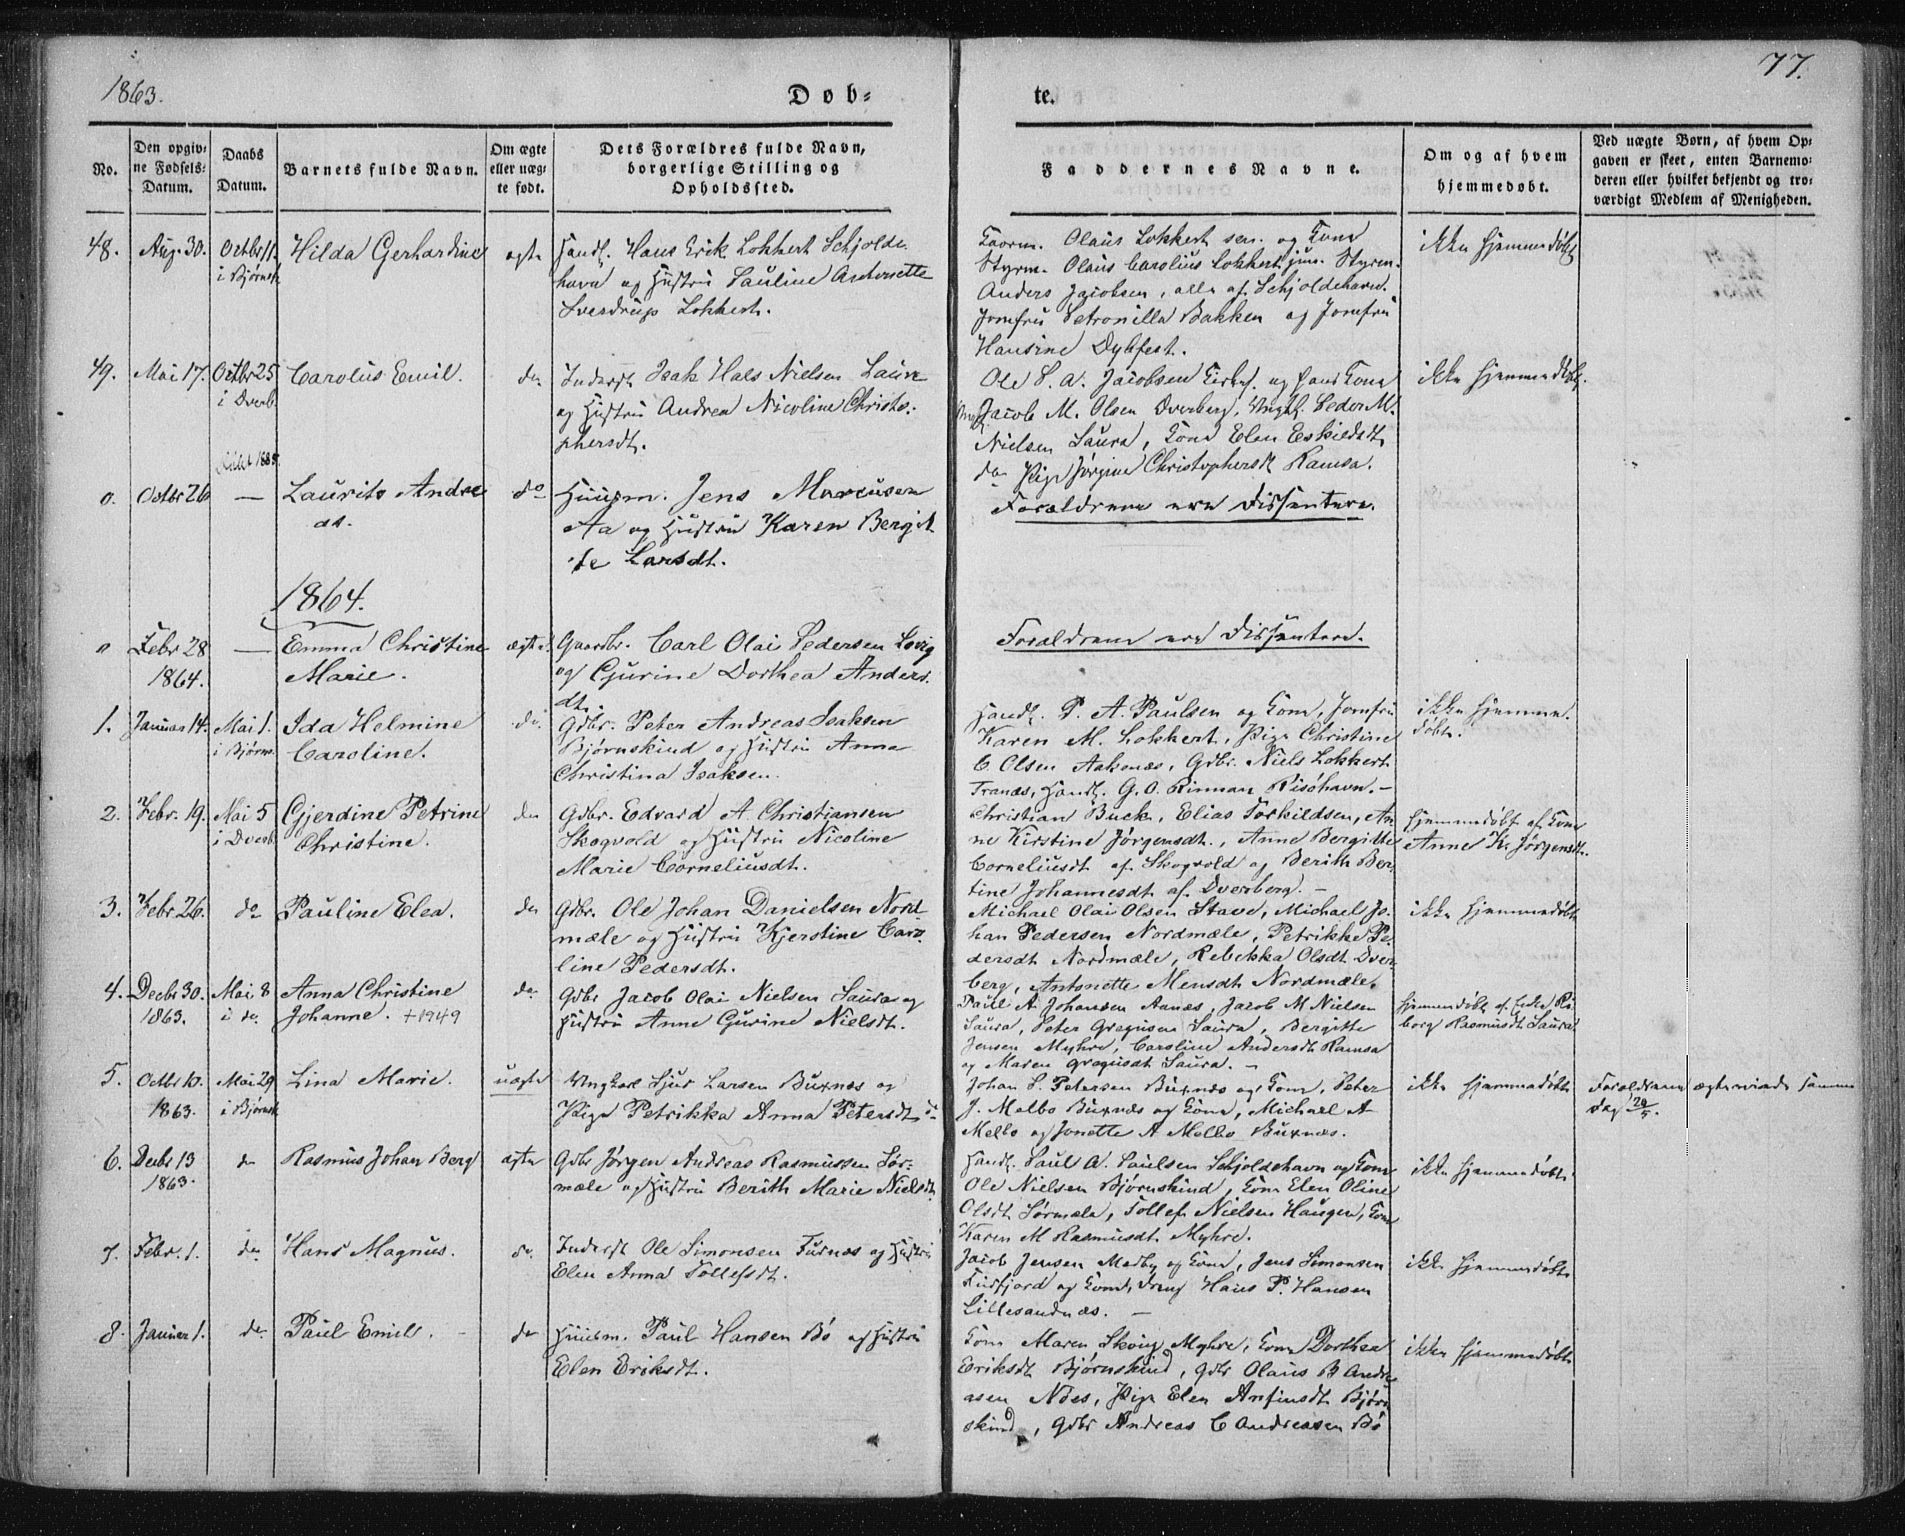 1863.
Døb-
te.
77.
No.
Den opgiv-
ne Fødsels-
Datum.
Daabs
Datum.
Barnets fulde Navn.
Om ægte
eller uæg-
te født.
Dets Forældres fulde Navn,
borgerlige Stilling og
Opholdssted.
Faddernes Navne.
Om og af hvem
hjemmedøbt.
Ved uægte Børn, af hvem Op-
gaven er skeet, enten Barnemo-
deren eller hvilket bekjendt og tro-
værdigt Medlem af Menigheden.
48. Aug. 30. Octbr 11. Hilda Gerhardine ægte Handl. Hans Erik Lokkert Schjolde-
i Bjørnsk. havn og Hustru Pauline Antonette
Sverdrup Lokkert.
Olaus Lokkert sen. og Kone
Styrm. Olaus Carolius Lokkert jun. Styrm.
Anders Jacobsen, alle af Schjoldehavn.
Jomfru Petronilla Bakken og Jomfru
Hansine Dybfest.
ikke hjemmedøbt
49. Mai 17. Octbr 25 Carolus Emil. do. Inderst Isak Hals Nielsen
i Dverb. og Hustru Andrea Nicoline Christo-
phersdt.
Ole P. A. Jacobsen og hans Kone
Jacob M. Olsen Dverberg, Ungk. Peder M.
Nielsen Saura, Kone Elen Eskildsdt
do Pige Jørgine Christophersdt Ramsa.
ikke hjemmedøbt.
0. Octbr 26 — Laurits Andre- do Huusm. Jens Marcusen
as. Aa og Hustru Karen Bergit-
te Larsdt.
Forældrene ere Dissentere.
1864.
0 Febr 28 — Emma Christine ægte Gaardbr. Carl Olai Pedersen
1864. Marie. og Gjurine Dorthea Anders-
dt.
Forældrene ere Dissentere.
1. Januar 14. Mai 1. Ida Helmine do. Gdbr. Peter Andreas Isaksen
i Bjørnsk. Caroline. Bjørnskind og Hustru Anna
Christina Isaksen.
Handl. P. A. Paulsen og Kone, Jomfru
Karen M. Lokkert, Pige Christine
C. Olsen Aakenæs, Gdbr. Niels Lokkert
Tranæs, Handl. G. O. Rinnan Risøhavn. —
ikke hjemme-
døbt.
2. Febr. 19. Mai 5 Gjerdine Petrine do Gdbr. Edvard A. Christiansen
i Dverb. Christine. Skogvold og Hustru Nicoline
Marie Corneliusdt.
Christian Buck, Elias Torkildsen, An-
ne Kirstine Jørgensdt., Anne Bergitte
Corneliusdt af Skogvold og Berith Ber-
tine Johannesdt af Dverberg. —
Hjemmedøbt af Kone
Anne K. Jørgensdt.
3. Febr. 26. do Pauline Elea. do Gdbr. Ole Johan Danielsen Nord-
mæle og Hustru Kjerstine Caro-
line Pedersdt.
Michael Olai Olsen Stave, Michael Jo-
han Pedersen Nordmæle, Petrikke Pe-
dersdt Nordmæle, Rebekka Olsdt Dver-
berg, Antonette Mensdt Nordmæle.
ikke hjemmedøbt
4. Decbr 30. Mai 8 Anna Christine do Gdbr Jacob Olai Nielsen Saura og
1863. i do. Johanne. +1949 Hustru Anne Gurine Nielsdt.
Paul A. Johansen Aanæs, Jacob M Nielsen
Saura, Peter Gregusen Saura, Bergitte
Jensen Myhre, Caroline Andersdt Ramsa
og Maren Gregusdt Saura. —
Hjemmedøbt af
borg Rasmusdt Saura
5. Octbr 10. Mai 29 Lina Marie. uægte Ungkarl Sjur Larsen Buxnæs og
1863. i Bjørnsk Pige Petrikka Anna Petersdt
Johan S. Petersen Buxnæs og Kone, Peter
J. Melbo Buxnæs og Kone, Michael A
Melbo og Jonette A Melbo Buxnæs.
ikke hjemmedøbt
Forældrene ægteviede samme
Dag 29/5.
6. Decbr 13 do Rasmus Johan Berg ægte Gdbr Jørgen Andreas Rasmussen Sør-
1863. mæle og Hustru Berith Marie Nielsdt.
Handl. Paul A. Paulsen Schjoldehavn og Kone
Ole Nielsen Bjørnskind, Kone Elen Oline
Olsdt Sørmæle, Tollef Nielsen Haugen, Kone
Karen M Rasmusdt. Myhre.
ikke hjemmedøbt.
7. Febr. 1. do Hans Magnus. do. Inderst Ole Simonsen Furnæs og Hustru
Elen Anna Tollefsdt.
Jacob Jensen Medby og Kone, Jens Simonsen
og Kone, Dreng Hans P. Hansen
Lillesandnæs. —
ikke hjemmedøbt
8. Januar 1. do. Paul Emil. do Huusm. Paul Hansen Bø og Hustru
Elen Eriksdt.
Kone Maren Skoug Myhre, Kone Dorthea
Eriksdt Bjørnskind, Gdbr Olaus B Andre-
asen Nøes, Pige Elen Anfindsdt Bjørn-
skind, Gdbr Andreas C Andreasen Bø
ikke hjemmedøbt